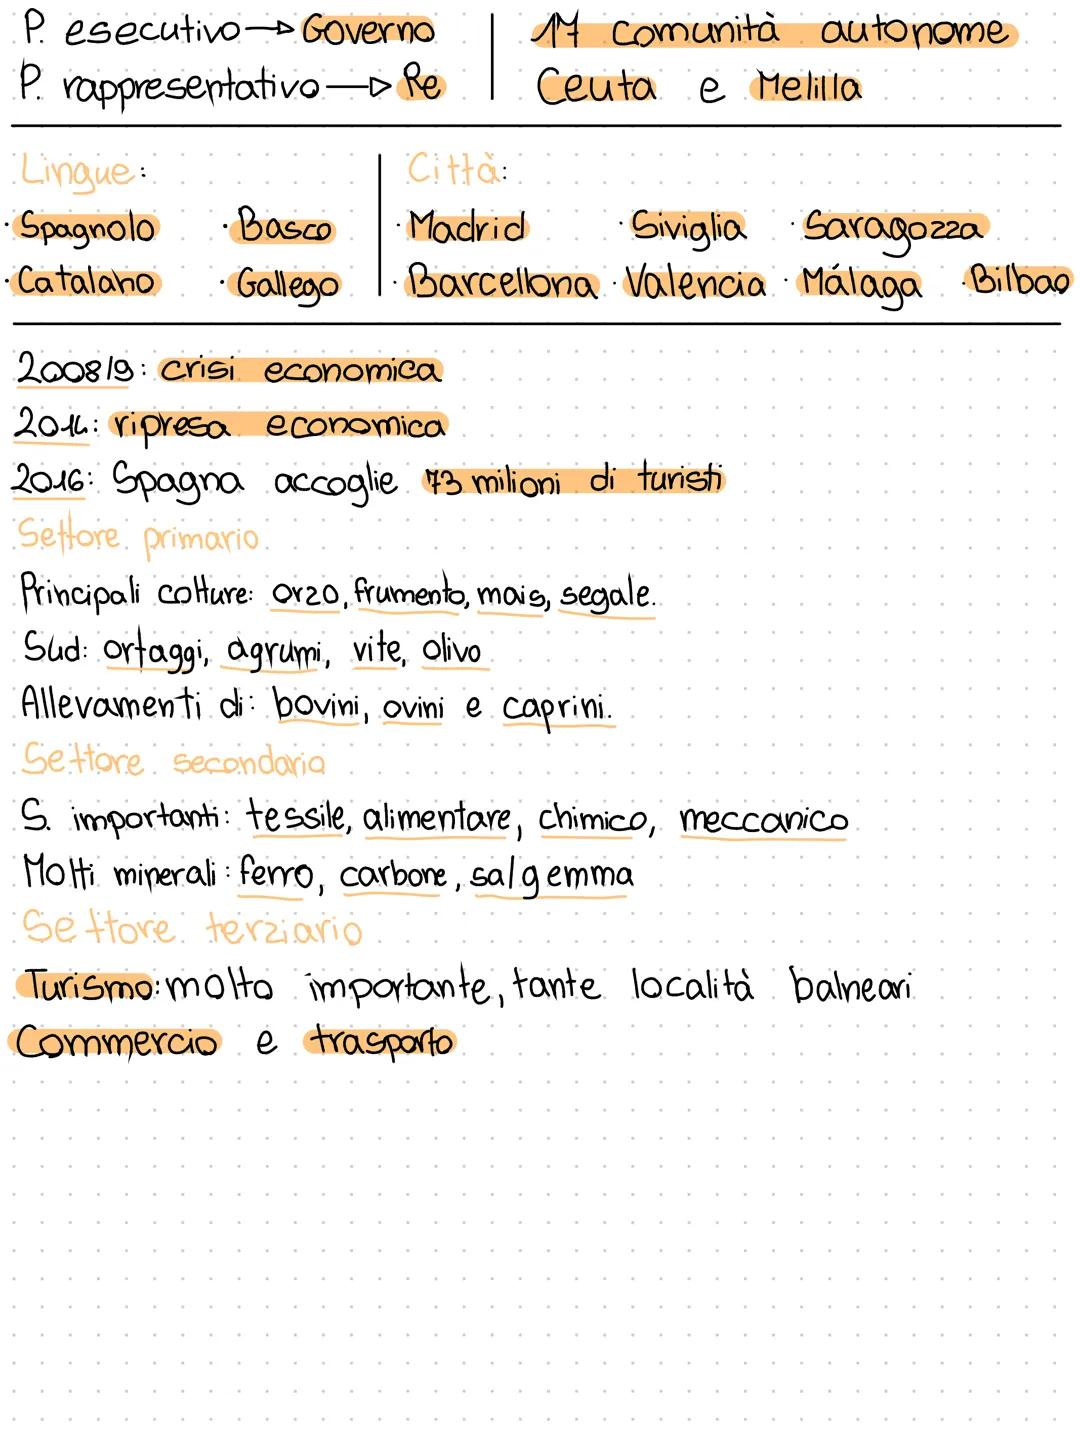 P. esecutivo → Governo
P. rappresentativo → Re
17 comunità autonome
Ceuta e Melilla
Lingue:
· Spagnolo · Basco
· Catalano · Gallego
Città:
· Madrid · Siviglia · Saragozza
· Barcellona · Valencia · Málaga · Bilbao
2008/9: crisi economica
2014: ripresa economica
2016: Spagna accoglie 73 milioni di turisti
Settore primario
Principali colture: orzo, frumento, mais, segale.
Sud: ortaggi, agrumi, vite, olivo
Allevamenti di: bovini, ovini e caprini.
Settore secondario
S. importanti: tessile, alimentare, chimico, meccanico
Molti minerali: ferro, carbone, salgemma
Settore terziario
Turismo: molto importante, tante località balneari
Commercio e trasporto